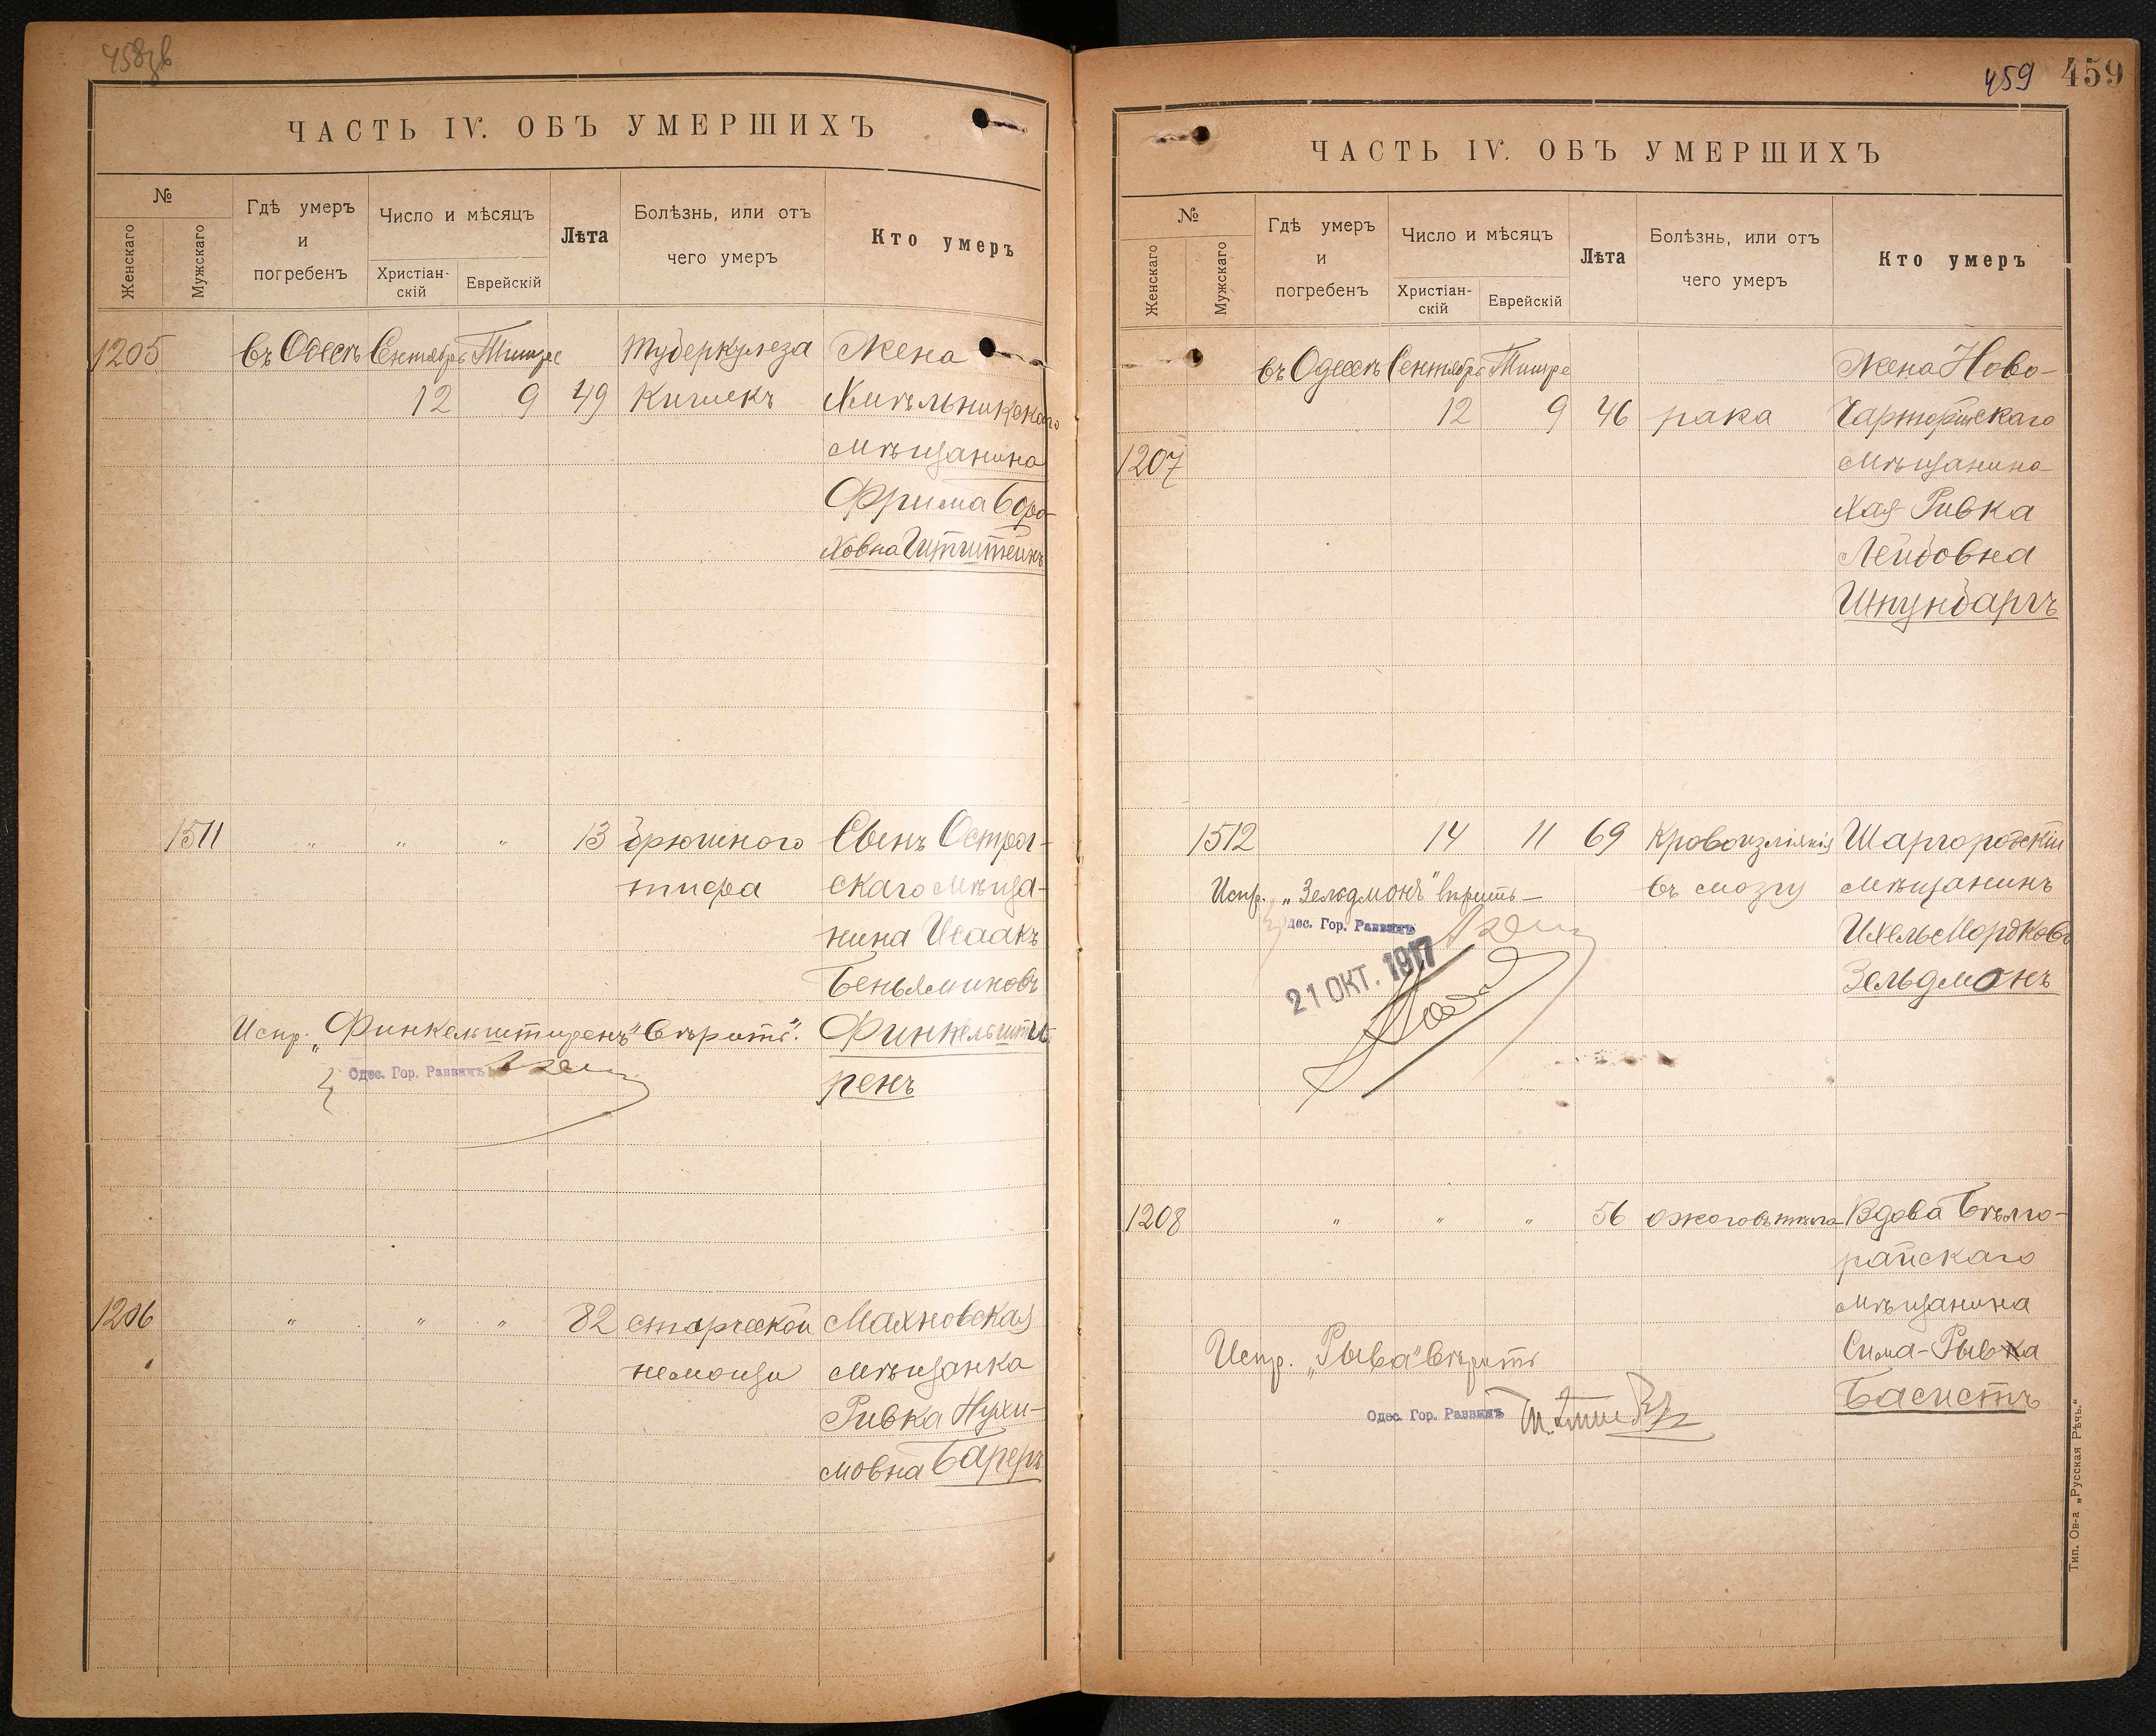 458зв
ЧАСТЬ IV. ОБЪ УМЕРШИХЪ
№
Женскаго
Мужскаго
Гдѣ умеръ и погребенъ
Число и мѣсяцъ
Христіан-скій
Еврейскій
Лѣта
Болѣзнь, или отъ чего умеръ
Кто умеръ
1205 въ Одессѣ Сентябрь Тишре Туберкулеза Жена
12 9 49 Кишекъ Хмѣльникскаго
мѣщанина
Фрима Боро-
ховна
1511 " " " 13 брюшного Сынъ Острог-
тифа скаго мѣща-
нина Исаакъ
Беньяминовъ
Испр. „Финкельштиренъ" вѣрить. Финкельшти
Одес. Гор. Раввинъ
ренъ
1206 " " " 82 старческой Махновская
немощи мѣщанка
Ривка Нухи-
мовна Бареръ
459 459
ЧАСТЬ IV. ОБЪ УМЕРШИХЪ
№
Женскаго
Мужскаго
Гдѣ умеръ и погребенъ
Число и мѣсяцъ
Христіан-скій
Еврейскій
Лѣта
Болѣзнь, или отъ чего умеръ
Кто умеръ
въ Одессѣ Сентябрь Тишре Жена Ново-
12 9 46 рака Чарторійскаго
1207 мѣщанина
Хая Ривка
Лейбовна
Шпунбаргъ
1512 14 11 69 Кровоизліянія Шаргородскій
Испр. „Зельдмонъ" вѣрить— въ мозгу мѣщанинъ
Одес. Гор. Раввинъ
21 ОКТ. 1917
Ихель Мордковъ
Зельдмонъ
1208 " " " 56 ожоговъ тѣла Вдова Бѣлго-
райскаго
мѣщанина
Испр. „Рыва" вѣрить Сима-Рывка
Одес. Гор. Раввинъ
Басистъ
Тип. Ов-а „Русская Рѣчь."